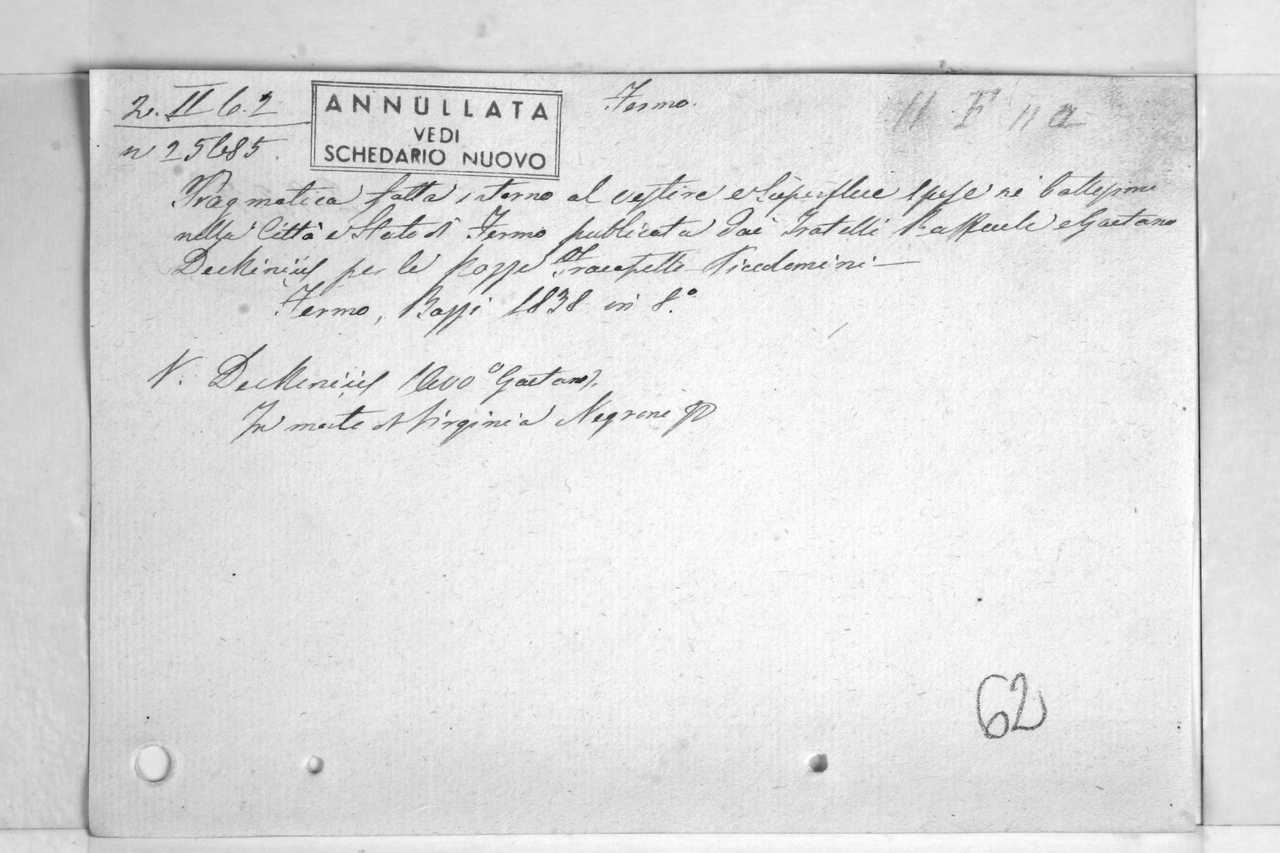 2. II 6. 2
n 25685.
ANNULLATA
VEDI
SCHEDARIO NUOVO
Fermo.
Pragmatica fatta intorno al vestire e superflue spese ne' battesimi
nella Città e Stato di Fermo publicata dai Fratelli Raffaele e Gaetano
DeMinicis per le Nozze Vicedomini —
Fermo, Paggi 1838 in 8.°
V. DeMinicis (Gaetano).
In morte di Virginia Negroni
62